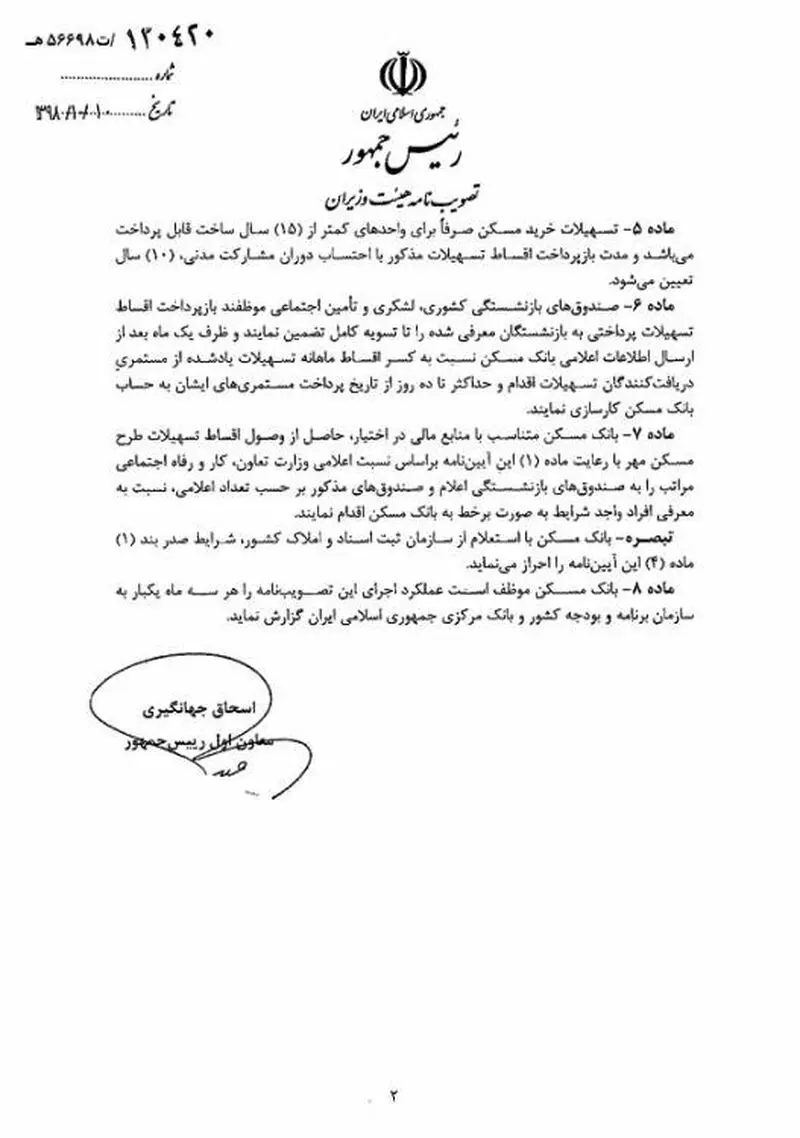 ۱۲۰۴۲۰/ت۵۶۶۹۸هـ
شماره ......................
تاریخ ..........۱۳۹۸/۱۰/۱۰
جمهوری اسلامی ایران
رئیس جمهور
تصویب نامه هیئت وزیران
ماده ۵- تسهیلات خرید مسکن صرفاً برای واحدهای کمتر از (۱۵) سال ساخت قابل پرداخت
می‌باشد و مدت بازپرداخت اقساط تسهیلات مذکور با احتساب دوران مشارکت مدنی، (۱۰) سال
تعیین می‌شود.
ماده ۶- صندوق‌های بازنشستگی کشوری، لشکری و تأمین اجتماعی موظفند بازپرداخت اقساط
تسهیلات پرداختی به بازنشستگان معرفی شده را تا تسویه کامل تضمین نمایند و ظرف یک ماه بعد از
ارسال اطلاعات اعلامی بانک مسکن نسبت به کسر اقساط ماهانه تسهیلات یادشده از مستمری
دریافت‌کنندگان تسهیلات اقدام و حداکثر تا ده روز از تاریخ پرداخت مستمری‌های ایشان به حساب
بانک مسکن کارسازی نمایند.
ماده ۷- بانک مسکن متناسب با منابع مالی در اختیار، حاصل از وصول اقساط تسهیلات طرح
مسکن مهر با رعایت ماده (۱) این آیین‌نامه براساس نسبت اعلامی وزارت تعاون، کار و رفاه اجتماعی
مراتب را به صندوق‌های بازنشستگی اعلام و صندوق‌های مذکور بر حسب تعداد اعلامی، نسبت به
معرفی افراد واجد شرایط به صورت برخط به بانک مسکن اقدام نمایند.
تبصره- بانک مسکن با استعلام از سازمان ثبت اسناد و املاک کشور، شرایط صدر بند (۱)
ماده (۴) این آیین‌نامه را احراز می‌نماید.
ماده ۸- بانک مسکن موظف است عملکرد اجرای این تصویب‌نامه را هر سه ماه یکبار به
سازمان برنامه و بودجه کشور و بانک مرکزی جمهوری اسلامی ایران گزارش نماید.
اسحاق جهانگیری
معاون اول رییس‌جمهور
۲